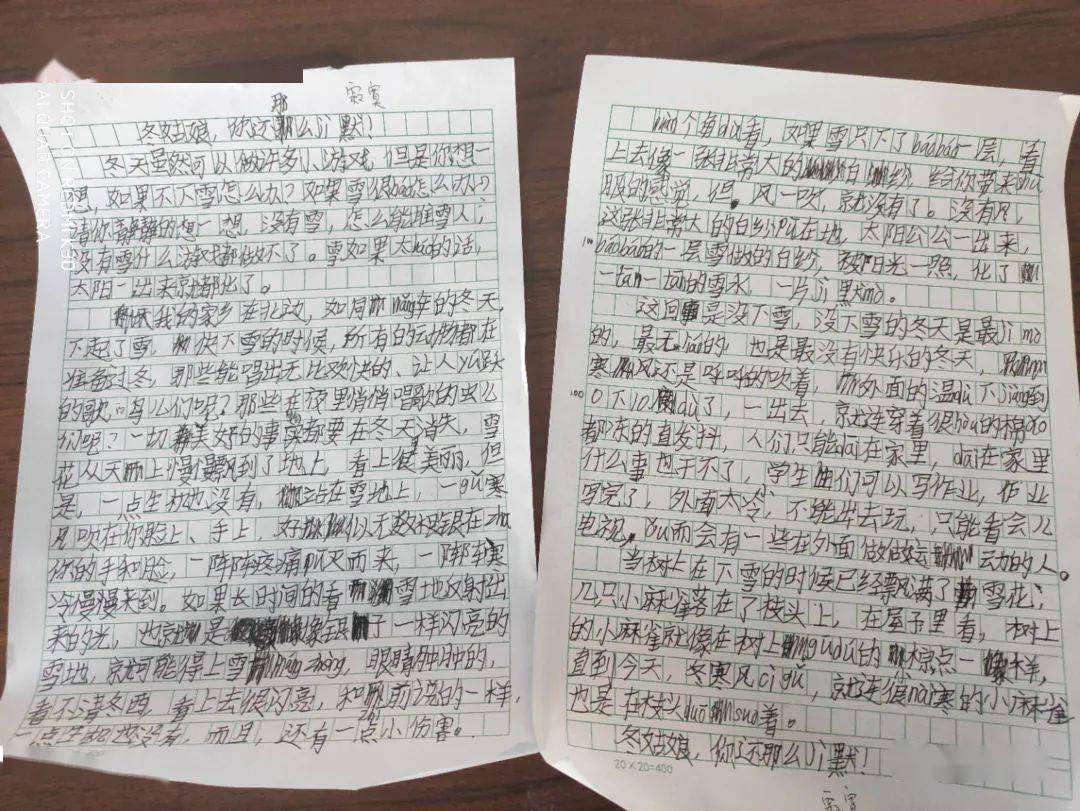 那
寂寞
冬姑娘,你还那么jì默!
冬天虽然可以做许多小游戏,但是你想一
想,如果不下雪怎么办?如果雪很báo怎么办?
请你静静的想一想,没有雪,怎么能堆雪人;
没有雪什么游戏都做不了。雪如果太báo的话,
太阳一出来就都化了。
我的家乡在北边,如同nǎng年的冬天,
下起了雪,快下雪的时候,所有的动物都在
准备过冬,那些能唱出无比欢快的、让人yú跃
的歌的鸟儿们呢?那些在夜里悄悄唱歌的虫儿
们呢?一切美好的事读都要在冬天消失,雪
花从天上慢慢飘到了地上,看上很美丽,但
是,一点生机也没有,站在雪地上,一gǔ寒
风吹在你脸上、手上,好似无数根银在zhā
你的手和脸,一阵阵疼痛从天而来,一阵阵寒
冷慢慢来到。如果长时间的看雪地反射出
来的光,也就是像镜子一样闪亮的
雪地,就可能得上雪máng zhèng,眼睛肿肿的,
看不清东西,看上去很闪亮,和前说的一样,
一点生机也没有,而且,还有一点小伤害。
个角dù看,如果雪只下了báobáo一层,看
上去像一张非常大的白纱,给你带来shū
服的感觉,但,风一吹,就没有了。没有风,
这张非常大的白纱PU在地,太阳公公一出来,
báobáo的一层雪做的白纱,被阳光一照,化了
一tān一tān的雪水,一片jì默mò。
这回是没下雪,没下雪的冬天是最jì mò
的,最无 的,也是最没有快乐的冬天,
寒风还是呼呼的吹着,外面的温dù下jiàng到
0下10 dù了,一出去,就连穿着很hòu的棉ǎo
都冻的直发抖,人们只能dāi在家里,dāi在家里
什么事也干不了,学生们可以写作业,作业
写完了,外面太冷,不能出去玩,只能看会儿
电视。ǒu而会有一些在外面做做运动的人。
当树上在下雪的时候已经飘满了雪花;
几只小麻雀落在了枝头上,在屋子里看,树上
的小麻雀就像在树上gūdū的棕点一样,
直到今天,冬寒风cì gǔ,就连很nài寒的小麻雀
也是在枝头duō suo着。
冬姑娘,你还那么jì默!
20×20=400
寂寞